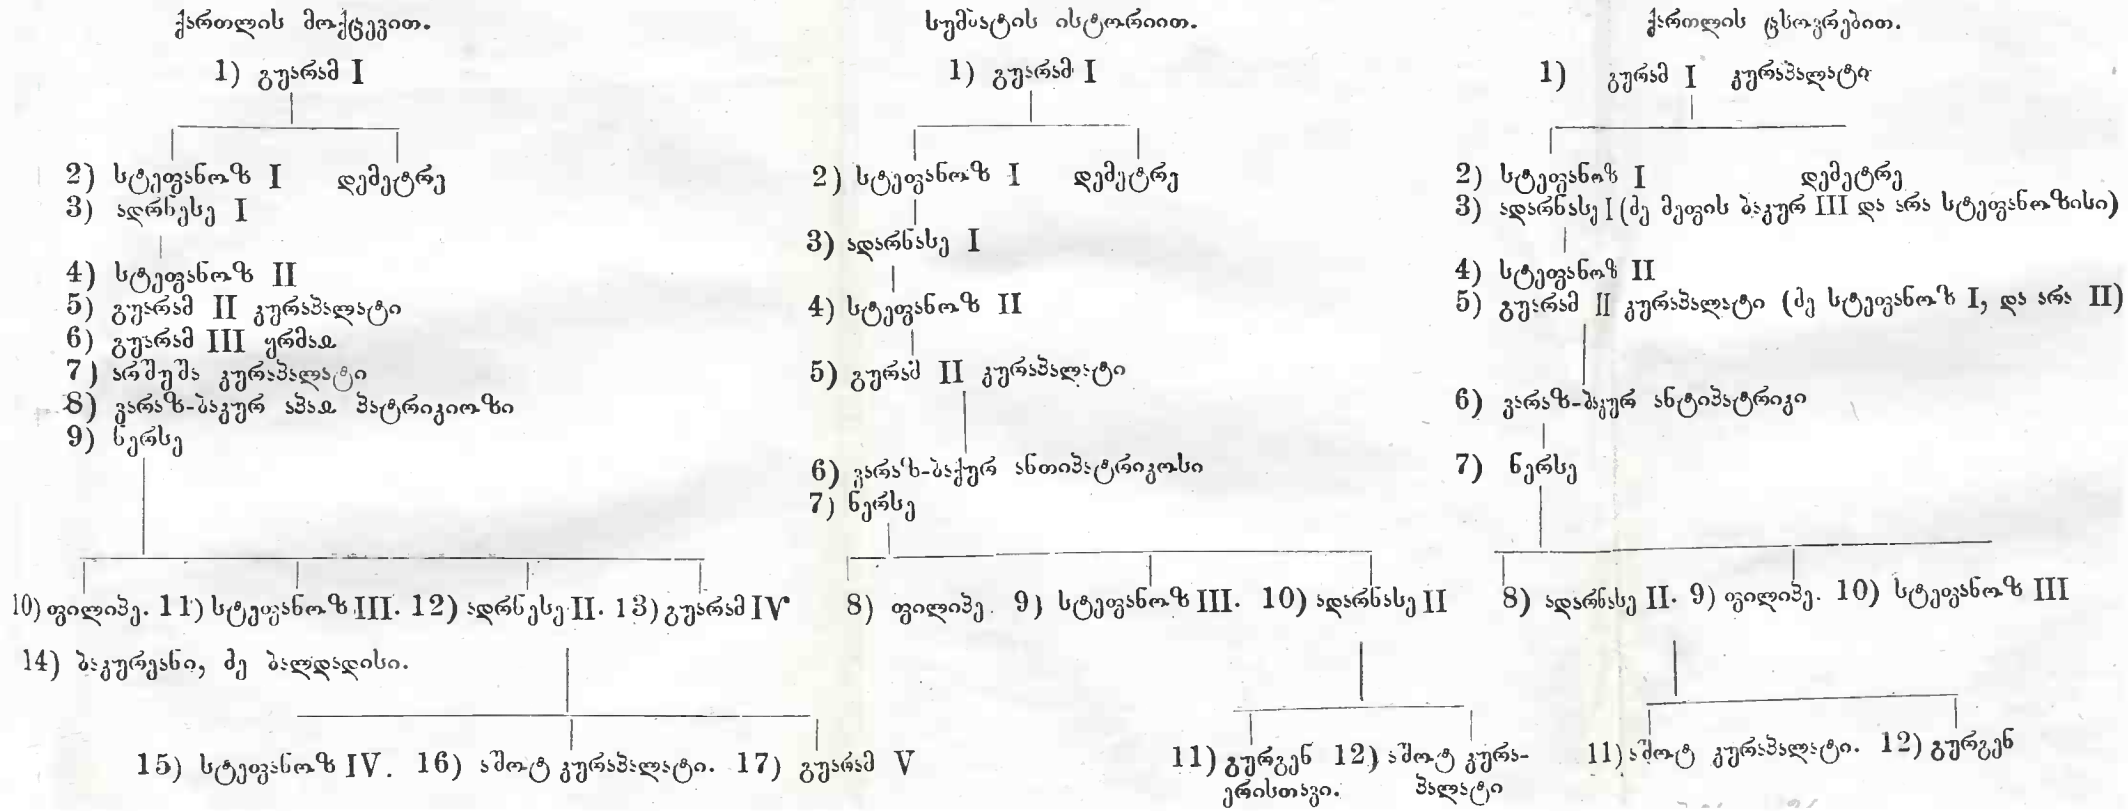 ქართლის მოქცევით.
1) გუარამ I
2) სტეფანოზ I დემეტრე
3) ადრნესე I
4) სტეფანოზ II
5) გუარამ II კურაპალატი
6) გუარამ III ყრმაჲ
7) არშუშა კურაპალატი
8) ვარაზ-ბაკურ აპაჲ პატრიკიოზი
9) ნერსე
10) ფილიპე. 11) სტეფანოზ III. 12) ადრნესე II. 13) გუარამ IV
14) ბაკურეანი, ძე ბალდადისი.
15) სტეფანოზ IV. 16) აშოტ კურაპალატი. 17) გუარამ V
სუმბატის ისტორიით.
1) გუარამ I
2) სტეფანოზ I დემეტრე
3) ადარნასე I
4) სტეფანოზ II
5) გურამ II კურაპალატი
6) ვარაზ-ბაქურ ანთიპატრიკოსი
7) ნერსე
8) ფილიპე. 9) სტეფანოზ III. 10) ადარნასე II
11) გურგენ 12) აშოტ კურა-
ერისთავი. პალატი
ქართლის ცხოვრებით.
1) გურამ I კურაპალატი
2) სტეფანოზ I დემეტრე
3) ადარნასე I (ძე მეფის ბაკურ III და არა სტეფანოზისი)
4) სტეფანოზ II
5) გუარამ II კურაპალატი (ძე სტეფანოზ I, და არა II)
6) ვარაზ-ბაკურ ანტიპატრიკი
7) ნერსე
8) ადარნასე II. 9) ფილიპე. 10) სტეფანოზ III
11) აშოტ კურაპალატი. 12) გურგენ